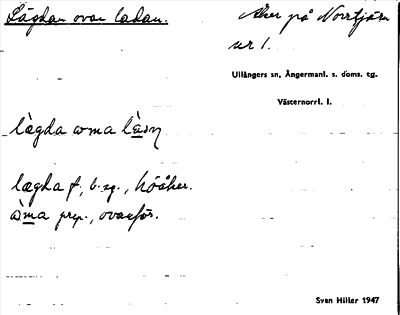 Lägdan ovan ladan.
Åker på Norrtjärn
nr 1.
Ullångers sn, Ångermanl. s. doms. tg.
Västernorrl. l.
lægda f, b. sg., höåker.
prep., ovanför.
Sven Hiller 1947